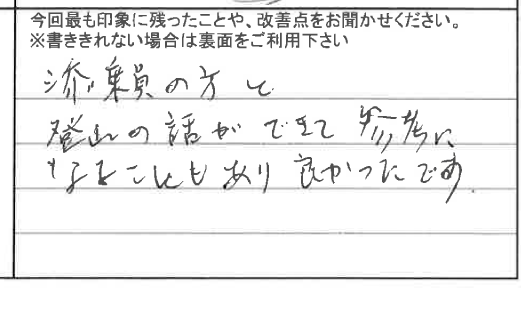 今回最も印象に残ったことや、改善点をお聞かせください。
※書ききれない場合は裏面をご利用下さい
添乗員の方と
登山の話ができて 参考に
なることもあり 良かったです.